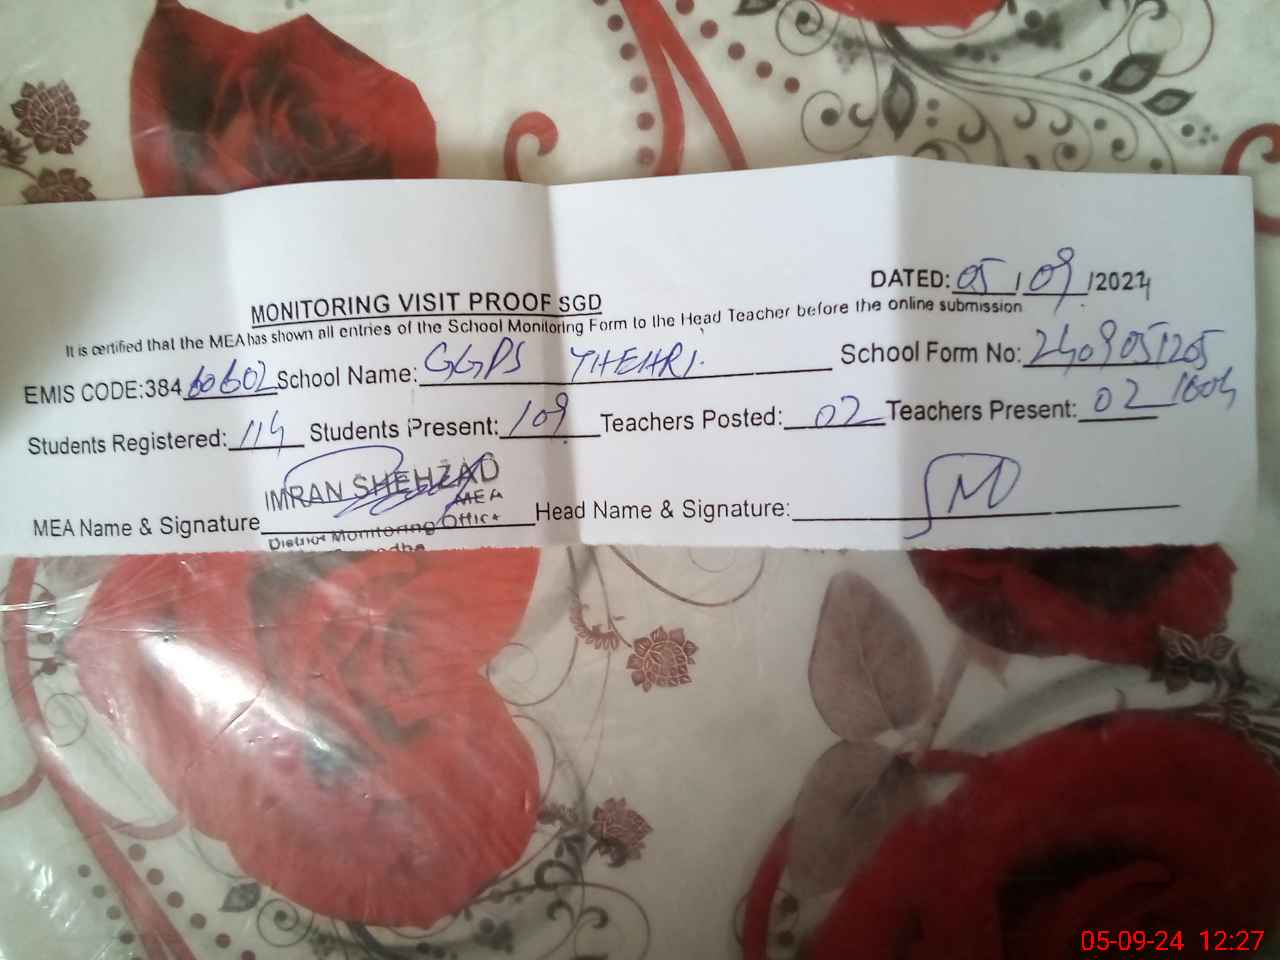 DATED: 05/09/2024
MONITORING VISIT PROOF SGD
It is certified that the MEA has shown all entries of the School Monitoring Form to the Head Teacher before the online submission
EMIS CODE:38460602 School Name: GGPS THEHRI. School Form No: 2409051205
1604
Students Registered: 114 Students Present: 109 Teachers Posted: 02 Teachers Present: 02
IMRAN SHEHZAD
MEA
MEA Name & Signature Head Name & Signature:
District Monitoring Office
05-09-24 12:27